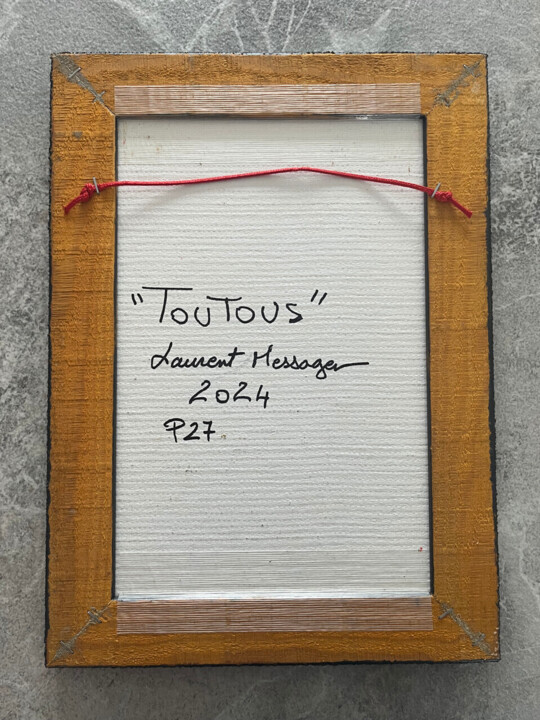 "TOUTOUS"
Laurent Messager
2024
P27